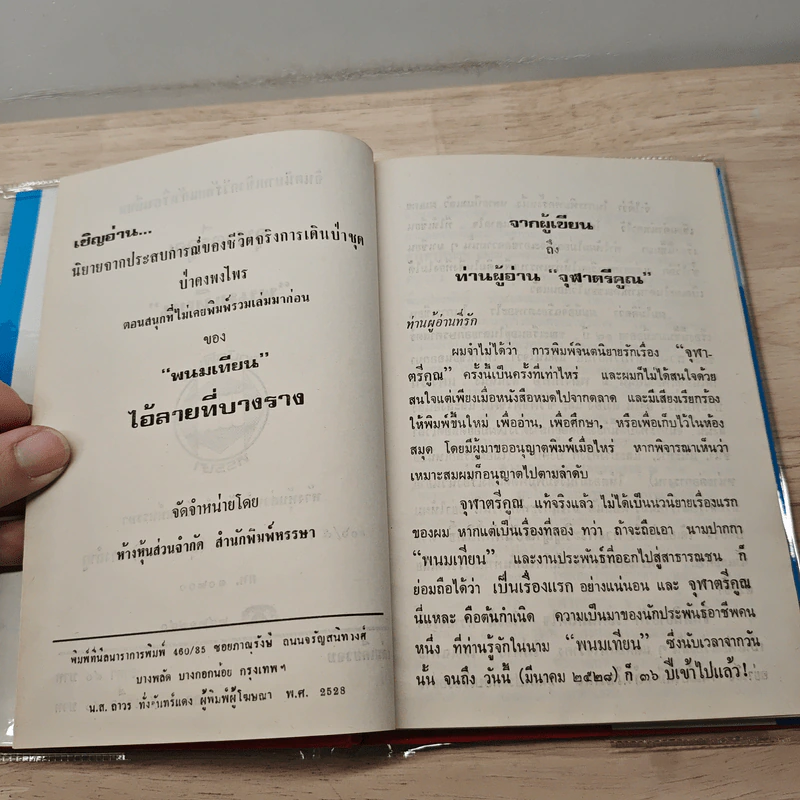 เชิญอ่าน...
นิยายจากประสบการณ์ของชีวิตจริงการเดินป่าชุด
ป่าดงพงไพร
ตอนสนุกที่ไม่เคยพิมพ์รวมเล่มมาก่อน
ของ
“พนมเทียน”
ไอ้ลายที่บางราง
จัดจำหน่ายโดย
ห้างหุ้นส่วนจำกัด สำนักพิมพ์หรรษา
พิมพ์ที่นีลนาราการพิมพ์ 460/85 ซอยภาณุรังษี ถนนจรัญสนิทวงศ์
บางพลัด บางกอกน้อย กรุงเทพฯ
น.ส. ถาวร ทั่งจันทร์แดง ผู้พิมพ์ผู้โฆษณา พ.ศ. 2528
จากผู้เขียน
ถึง
ท่านผู้อ่าน “จุฬาตรีคูณ”
ท่านผู้อ่านที่รัก
ผมจำไม่ได้ว่า การพิมพ์จินตนิยายรักเรื่อง “จุฬา-
ตรีคูณ” ครั้งนี้เป็นครั้งที่เท่าไหร่ และผมก็ไม่ได้สนใจด้วย
สนใจแต่เพียงเมื่อหนังสือหมดไปจากตลาด และมีเสียงเรียกร้อง
ให้พิมพ์ขึ้นใหม่ เพื่ออ่าน, เพื่อศึกษา, หรือเพื่อเก็บไว้ในห้อง
สมุด โดยมีผู้มาขออนุญาตพิมพ์เมื่อไหร่ หากพิจารณาเห็นว่า
เหมาะสมผมก็อนุญาตไปตามลำดับ
จุฬาตรีคูณ แท้จริงแล้ว ไม่ได้เป็นนวนิยายเรื่องแรก
ของผม หากแต่เป็นเรื่องที่สอง ทว่า ถ้าจะถือเอา นามปากกา
“พนมเทียน” และงานประพันธ์ที่ออกไปสู่สาธารณชน ก็
ย่อมถือได้ว่า เป็นเรื่องแรก อย่างแน่นอน และ จุฬาตรีคูณ
นี่แหละ คือต้นกำเนิด ความเป็นมาของนักประพันธ์อาชีพคน
หนึ่ง ที่ท่านรู้จักในนาม “พนมเทียน” ซึ่งนับเวลาจากวัน
นั้น จนถึง วันนี้ (มีนาคม ๒๕๒๘) ก็ ๓๖ ปีเข้าไปแล้ว!